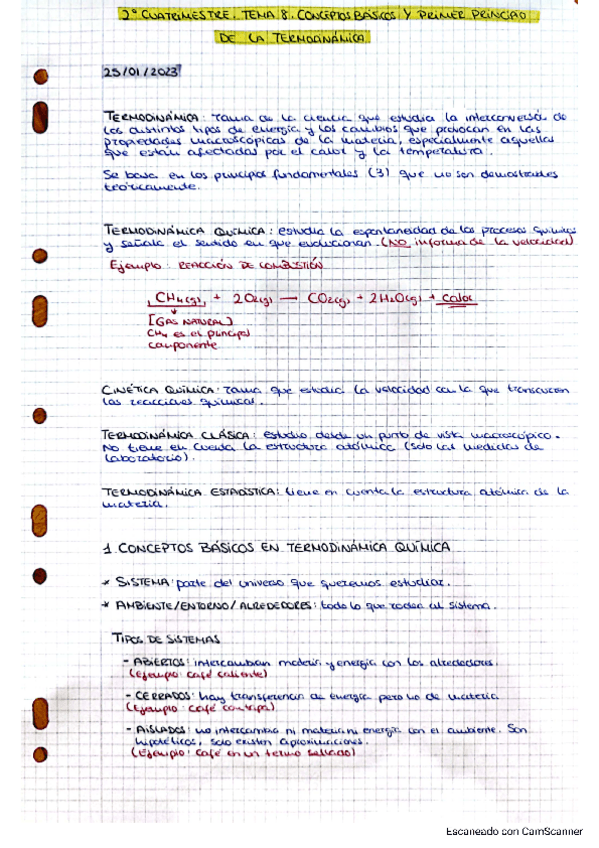 2º CUATRIMESTRE. TEMA 8. CONCEPTOS BÁSICOS Y PRIMER PRINCIPIO
DE LA TERMODINÁMICA.
25/01/2023
TERMODINÁMICA: rama de la ciencia que estudia la interconversión de
los distintos tipos de energía y los cambios que provocan en las
propiedades macroscópicas de la materia, especialmente aquellas
que están afectadas por el calor y la temperatura.
Se basa en los principios fundamentales (3) que no son demostrables
teóricamente.
TERMODINÁMICA QUÍMICA: estudia la espontaneidad de los procesos químicos
y señala el sentido en que evolucionan. (NO informa de la velocidad)
Ejemplo: REACCIÓN DE COMBUSTIÓN
CH4(g) + 2O2(g) → CO2(g) + 2H2O(g) + calor
[GAS NATURAL]
CH4 es el principal
componente
CINÉTICA QUÍMICA: rama que estudia la velocidad con la que transcurren
las reacciones químicas.
TERMODINÁMICA CLÁSICA: estudio desde un punto de vista macroscópico.
No tiene en cuenta la estructura atómica (solo las medidas de
laboratorio).
TERMODINÁMICA ESTADÍSTICA: tiene en cuenta la estructura atómica de la
materia.
1 CONCEPTOS BÁSICOS EN TERMODINÁMICA QUÍMICA
* SISTEMA: parte del universo que queremos estudiar.
* AMBIENTE/ENTORNO/ALREDEDORES: todo lo que rodea al sistema.
TIPOS DE SISTEMAS
- ABIERTOS: intercambian materia y energía con los alrededores.
(Ejemplo: café caliente)
- CERRADOS: hay transferencia de energía pero no de materia
(Ejemplo: café con tapa)
- AISLADOS: no intercambia ni materia ni energía con el ambiente. Son
hipotéticos, solo existen aproximaciones.
(Ejemplo: café en un termo sellado)
Escaneado con CamScanner